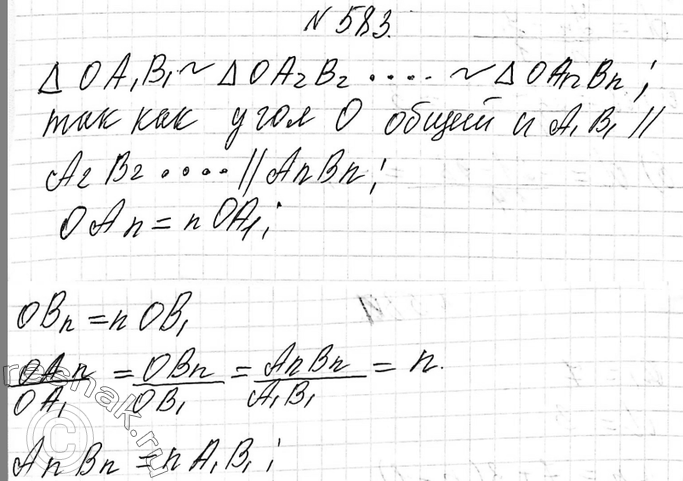 N 583.
Δ OA₁B₁ ~ Δ OA₂B₂ .... ~ Δ OAnBn;
так как угол O общий и A₁B₁ //
A₂B₂ .... // AnBn;
OAn = nOA₁;
OBn = nOB₁
OAn/OA₁ = OBn/OB₁ = AnBn/A₁B₁ = n.
AnBn = nA₁B₁;
reshak.ru